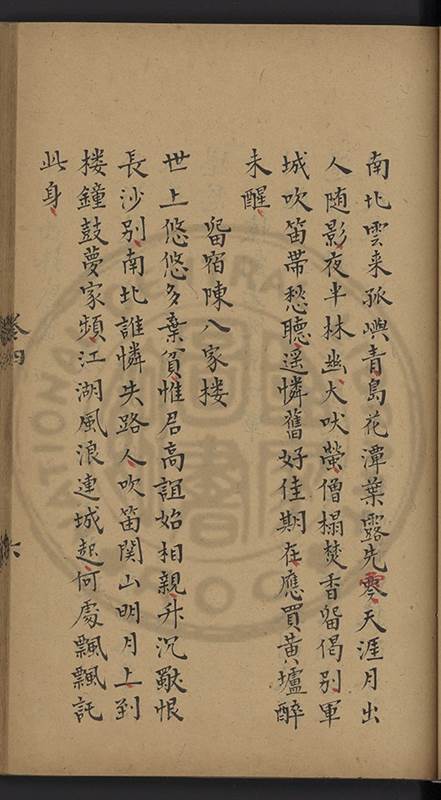 南北雲来孤嶼青島花潭葉露先零天涯月出
人随影夜半林幽犬吠螢僧榻焚香畱偈別軍
城吹笛帶愁聽遥憐舊好佳期在應買黃壚醉
未醒
畱宿陳八家楼
世上悠悠多棄貧惟君高誼始相親升沉歇恨
長沙別南北誰憐失路人吹笛関山明月上到
楼鐘鼓夢家頻江湖風浪連城起何處飄飄託
此身